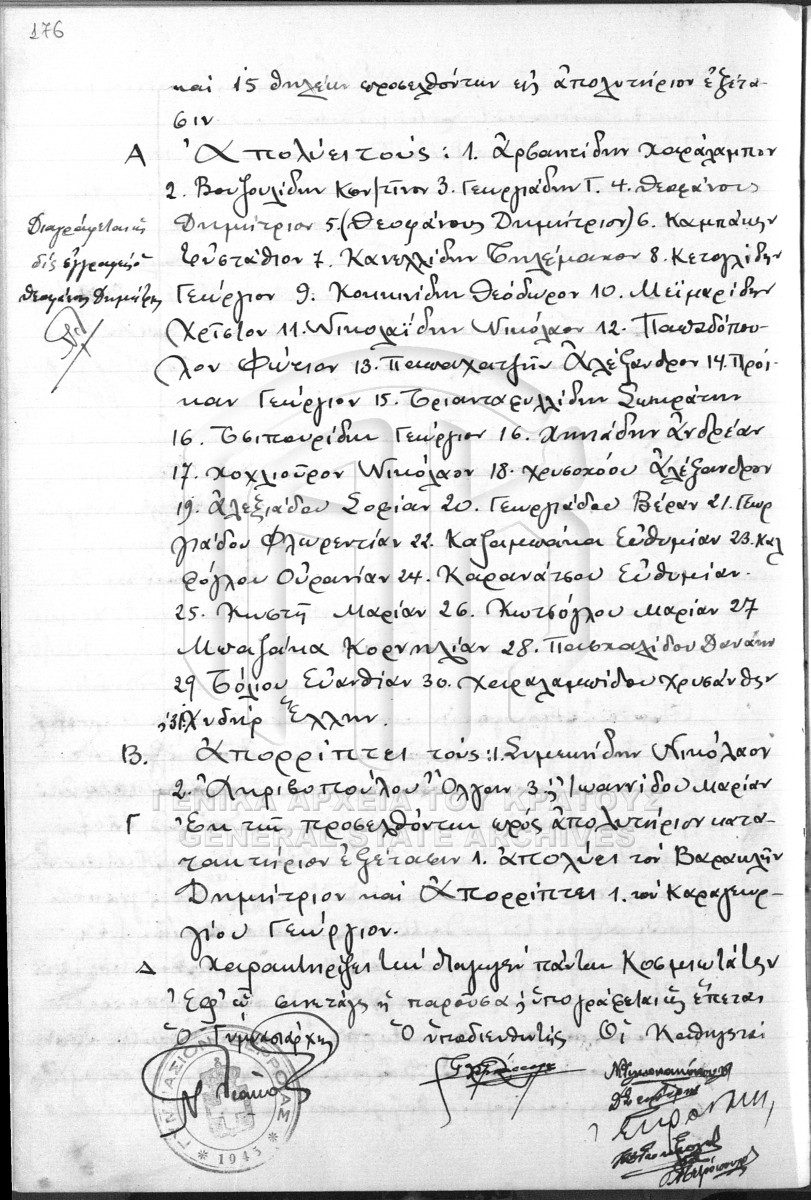 176
καὶ 15 θηλέων προσελθόντων εἰς ἀπολυτήριον ἐξέτα-
σιν
Α Ἀπολύει τούς: 1. Ἀρβανιτίδην Χαράλαμπον
2. Βουζουλίδην Κων/τῖνον 3. Γεωργιάδην Γ. 4. Θεοφάνους
Δημήτριον 5. (Θεοφάνους Δημήτριον) 6. Καμπάκην
Εὐστάθιον 7. Κανελλίδην Τηλέμαχον 8. Κετογλίδην
Γεώργιον 9. Κοκκινίδην Θεόδωρον 10. Μεϊμαρίδην
Χρῖστον 11. Νικολαΐδην Νικόλαον 12. Παπαδόπου-
λον Φώτιον 13. Παπαχατζῆν Ἀλέξανδρον 14. Πρόι-
καν Γεώργιον 15. Τριανταφυλλίδην Σωκράτην
16. Τσιπουρίδην Γεώργιον 16. Χηνάδην Ἀνδρέαν
17. Χοχλιοῦρον Νικόλαον 18. Χρυσοχόου Ἀλέξανδρον
19. Ἀλεξιάδου Σοφίαν 20. Γεωργιάδου Βέραν 21. Γεωρ
γιάδου Φλωρεντίαν 22. Καζαμπάκα Εὐθυμίαν 23. Καλ
φόγλου Οὐρανίαν 24. Καρανάτσου Εὐθυμίαν.
25. Κωστῆ Μαρίαν 26. Κωτσόγλου Μαρίαν 27
Μπαζάκα Κορνηλίαν 28. Πασχαλίδου Δανάην
29 Τόλιου Εὐανθίαν 30. Χαραλαμπίδου Χρυσάνθην
31. Χυδηρ Ἕλλην.
Διαγράφεται ὡς
δίς ἐγγραφείς ὁ
Θεοφάνους Δημήτρης
Β. Ἀπορρίπτει τούς: 1. Συμεωνίδην Νικόλαον
2. Ἀκριβοπούλου Ὄλγαν 3. Ἰωαννίδου Μαρίαν
ΓΕΝΙΚΑ ΑΡΧΕΙΑ ΤΟΥ ΚΡΑΤΟΥΣ
GENERAL STATE ARCHIVES
Γ Ἐκ τῶν προσελθόντων πρός ἀπολυτήριον κατα-
τακτήριον ἐξέτασιν 1. ἀπολύει τόν Βαρακλῆν
Δημήτριον καί Ἀπορρίπτει 1. τόν Καραγεωρ-
γίου Γεώργιον.
Δ Χαρακτηρίζει τήν διαγωγήν πάντων Κοσμιωτάτην
Ἐφ' ᾧ συνετάγη ἡ παροῦσα ὑπογράφεται ὡς ἕπεται
Ὁ Γυμνασιάρχης Ὁ ὑποδιευθυντής Οἱ Καθηγηταί
ΓΥΜΝΑΣΙΟΝ ΒΕΡΡΟΙΑΣ
1943